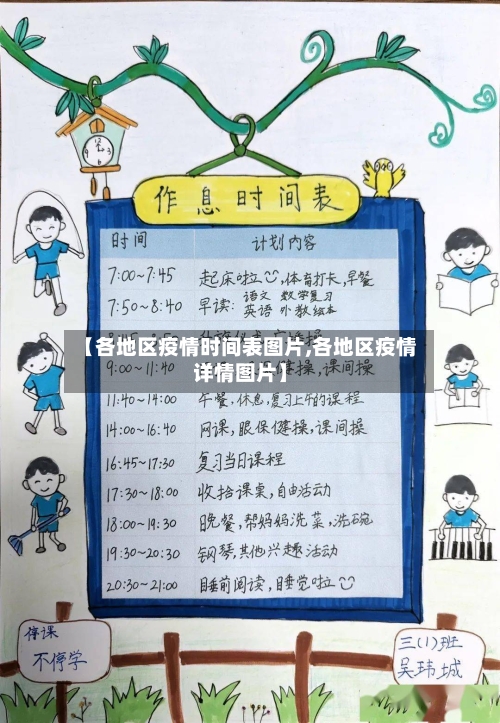 作息时间表
时间 计划内容
7:00~7:45 起床啦,体育打卡,早餐
7:50~8:40 早读:语文 数学复习
英语 外教绘本
【各地区疫情时间表图片,各地区疫情
详情图片】
9:00~11:40 操,课间操
11:40~14:00 午餐,休息,复习上午的课程
14:00~16:40 网课,眼保健操,课间操
16:45~17:30 复习当日课程
17:30~18:00 收拾课桌,自由活动
18:00~19:30 晚餐,帮妈妈洗菜,洗碗
19:30~20:30 钢琴,其他兴趣活动
20:30~21:00 睡前阅读,睡觉啦
停课
不停学
三(1)班
吴玮城